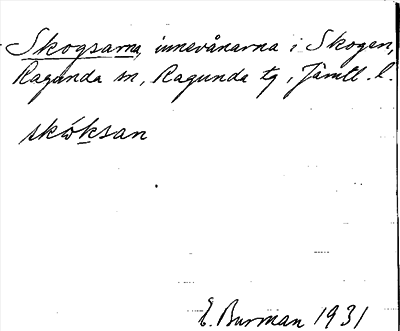 Skogsarna, innevånarna i Skogen,
Ragunda sn, Ragunda tg, Jämtl. l.
skóksan
E. Burman 1931